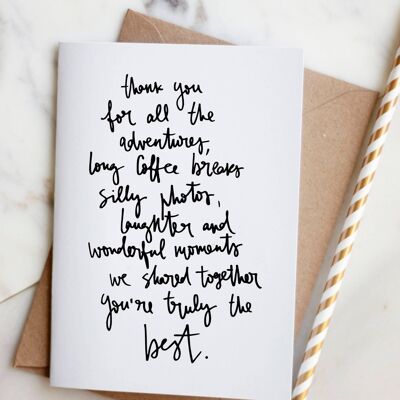 thank you
for all the
adventures,
long coffee breaks
silly photos,
laughter and
wonderful moments
we shared together
you're truly the
best.